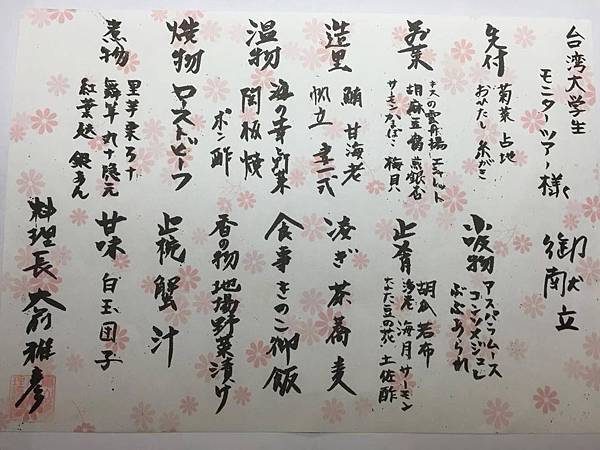 台湾大学生
モニターツアー様
御献立
先付
菊菜 占地
おひたし 糸がき
前菜
胡麻豆腐 煎銀杏
サーモンかまぼこ 梅貝
造里
鮪 甘海老
帆立 妻一式
温物
海の幸野菜
陶板焼
ポン酢
焼物
ローストビーフ
煮物
里芋
紅葉麩 銀あん
小吸物
アスパラムース
コンソメジュレ
ぶぶあられ
止肴
胡瓜 若布
海月 サーモン
土佐酢
凌ぎ
茶蕎麦
食事
きのこ御飯
香の物
地場野菜漬け
止椀
蟹汁
甘味
白玉団子
料理長